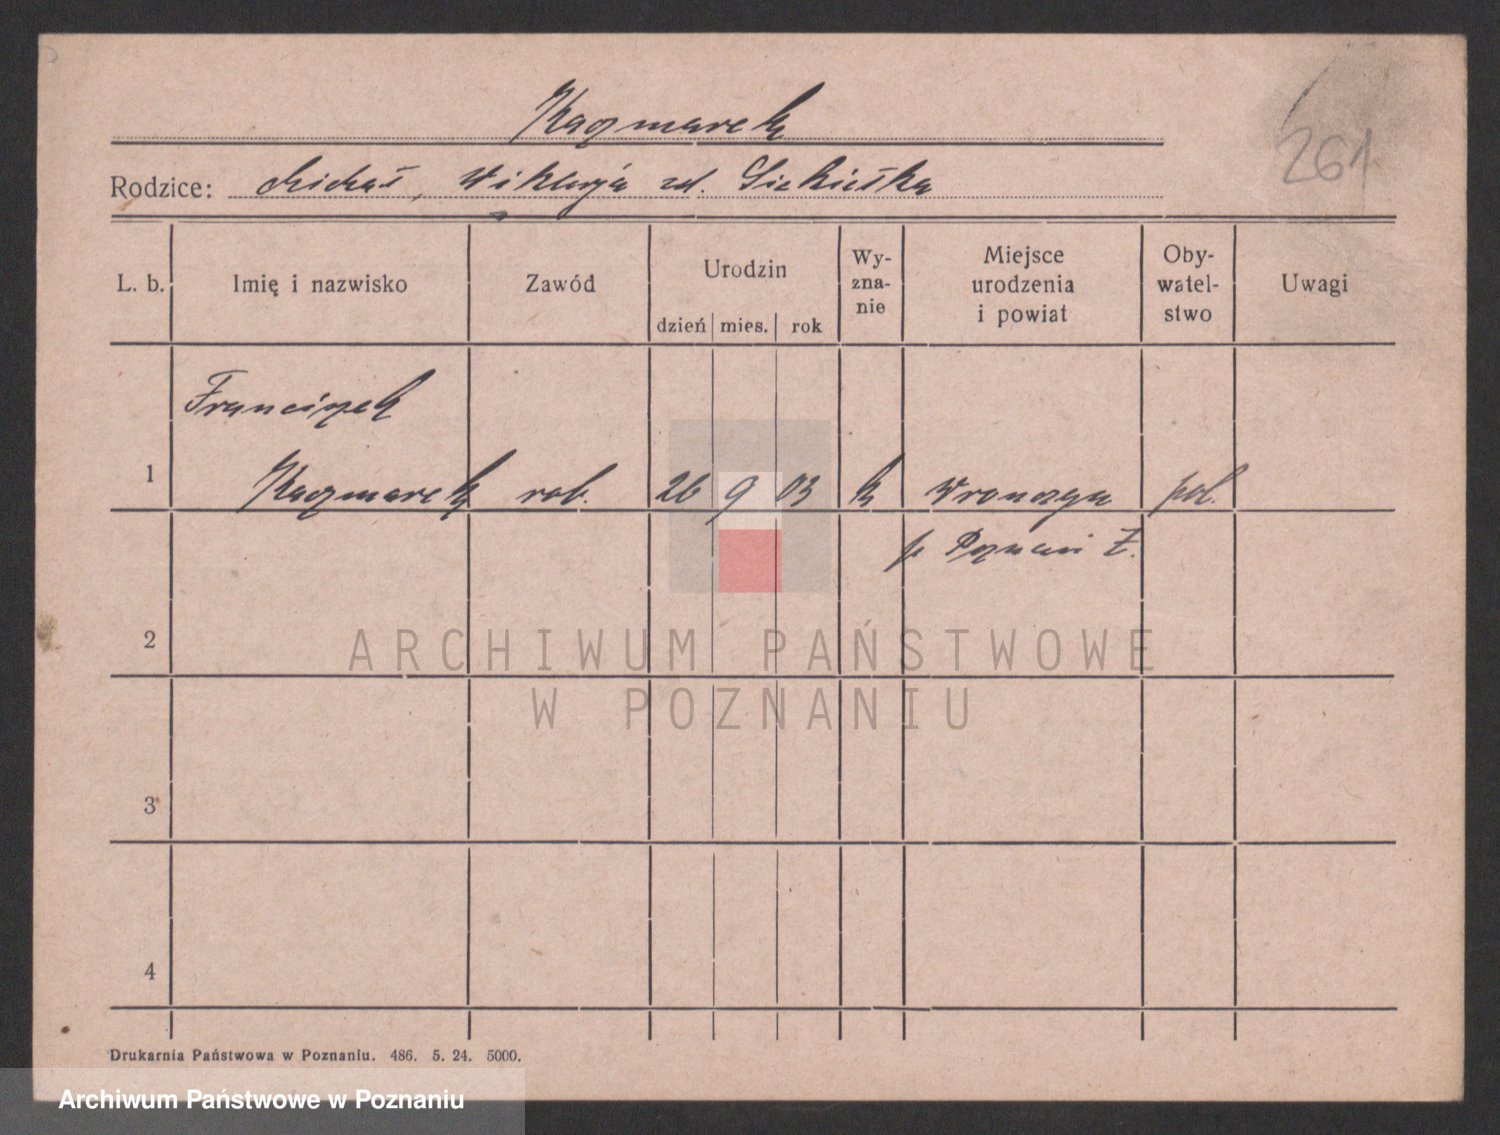 Kaczmarek
261
Rodzice: Michał, Wiktorja zd. Siekierska
L. b. Imię i nazwisko Zawód Urodzin dzień mies. rok Wy-zna-nie Miejsce urodzenia i powiat Oby-watel-stwo Uwagi
Franciszek
1 Kaczmarek rob. 26 9 03 k Wronczyn pol.
p. Poznań Z.
2
ARCHIWUM PAŃSTWOWE
W POZNANIU
3
4
Drukarnia Państwowa w Poznaniu. 486. 5. 24. 5000.
Archiwum Państwowe w Poznaniu